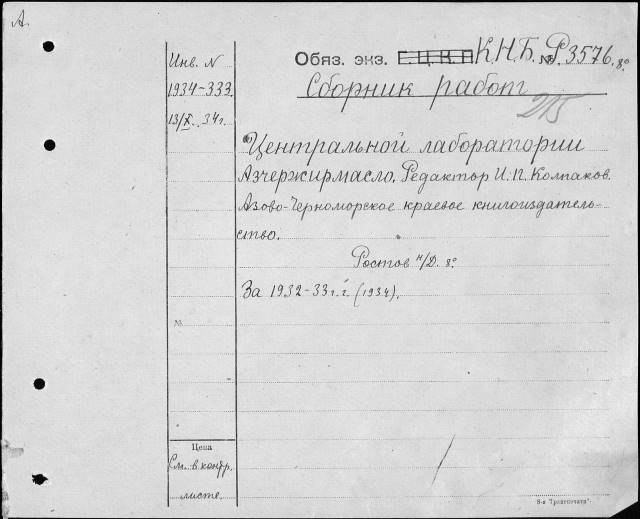 А.
Инв. N
1934-333.
13/X. 34г.
Обяз. экз. Е.Ц.К.П К.Н.Б. № Р 3576. 8°
Сборник работ
215
Центральной лаборатории
Азчержирмасло, Редактор И.П. Колпаков.
Азово-Черноморское краевое книгоиздатель-
ство.
Ростов н/Д. 8°
За 1932-33г.г. (1934).
№
Цена
См. в контр.
листе.